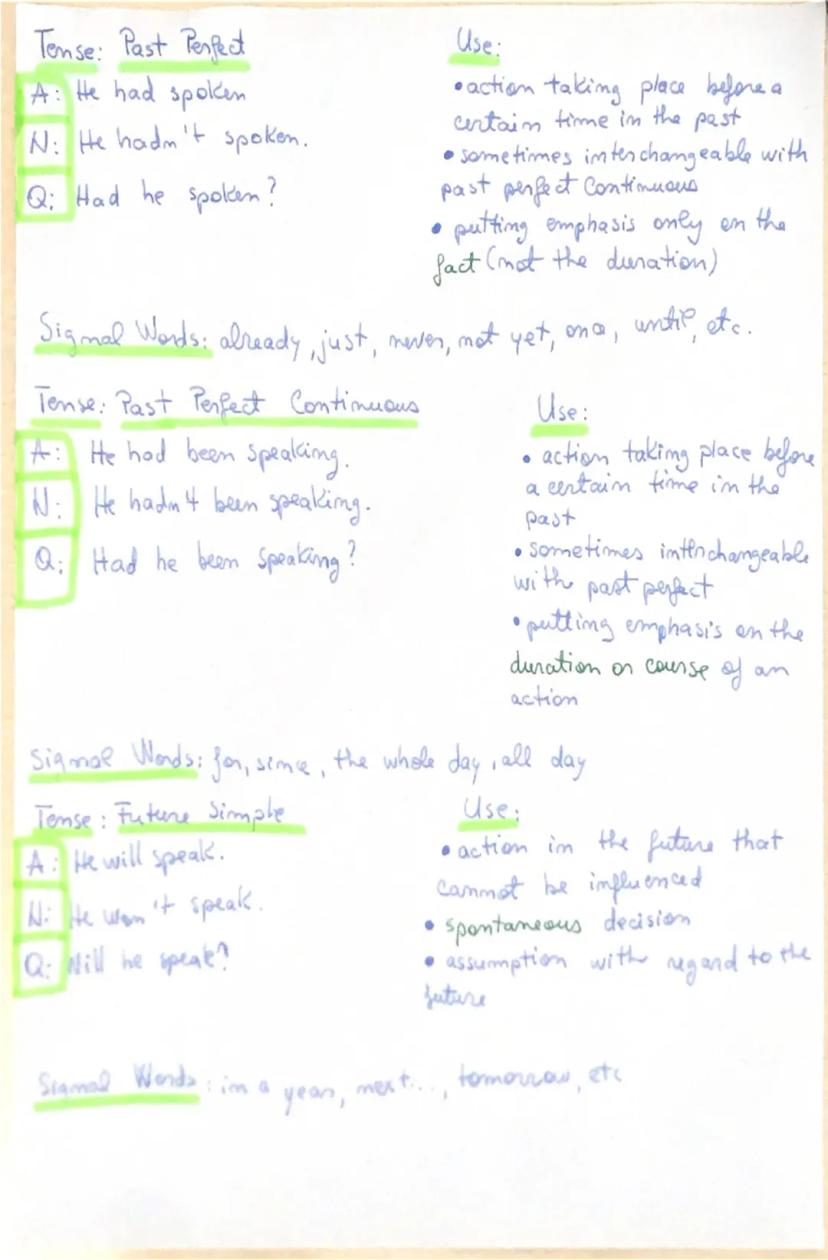 Tense: Past Perfect
A: He had spoken
N: He hadn't spoken.
Q: Had he spoken?
Use:
• action taking place before a
certain time in the past
• sometimes interchangeable with
past perfect Continuous
• putting emphasis only on the
fact (not the duration)
Signal Words: already, just, never, not yet, once, until, etc.
Tense: Past Perfect Continuous
A: He had been speaking.
N: He hadn't been speaking.
Q: Had he been speaking?
Use:
• action taking place before
a certain time in the
past
• sometimes interchangeable
with past perfect
• putting emphasis on the
duration or course of an
action
Signal Words: for, since, the whole day, all day
Tense: Future Simple
A: He will speak.
N: He won't speak.
Q: Will he speak?
Use:
• action in the future that
cannot be influenced
• spontaneous decision
• assumption with regard to the
future
Signal Words: in a year, next..., tomorrow, etc